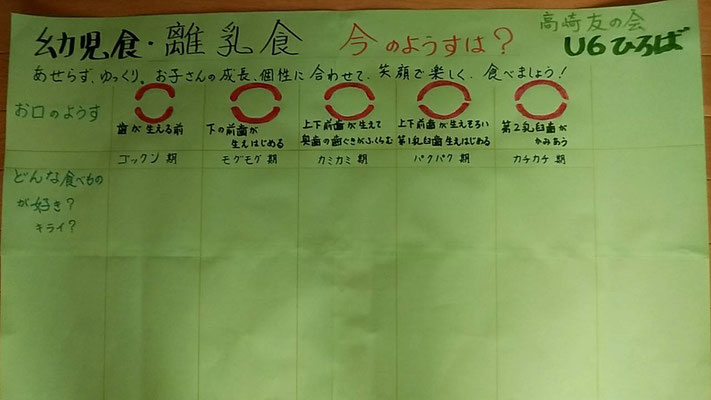 幼児食・離乳食 今のようすは？
高崎友の会
U6ひろば
あせらず、ゆっくり。お子さんの成長、個性に合わせて、笑顔で楽しく、食べましょう！
お口のようす
歯が生える前
ゴックン期
下の前歯が
生えはじめる
モグモグ期
上下前歯が生えて
奥歯の歯ぐきがふくらむ
カミカミ期
上下前歯が生えそろい
第1乳臼歯生えはじめる
パクパク期
第2乳臼歯が
かみあう
カチカチ期
どんな食べもの
が好き？
キライ？